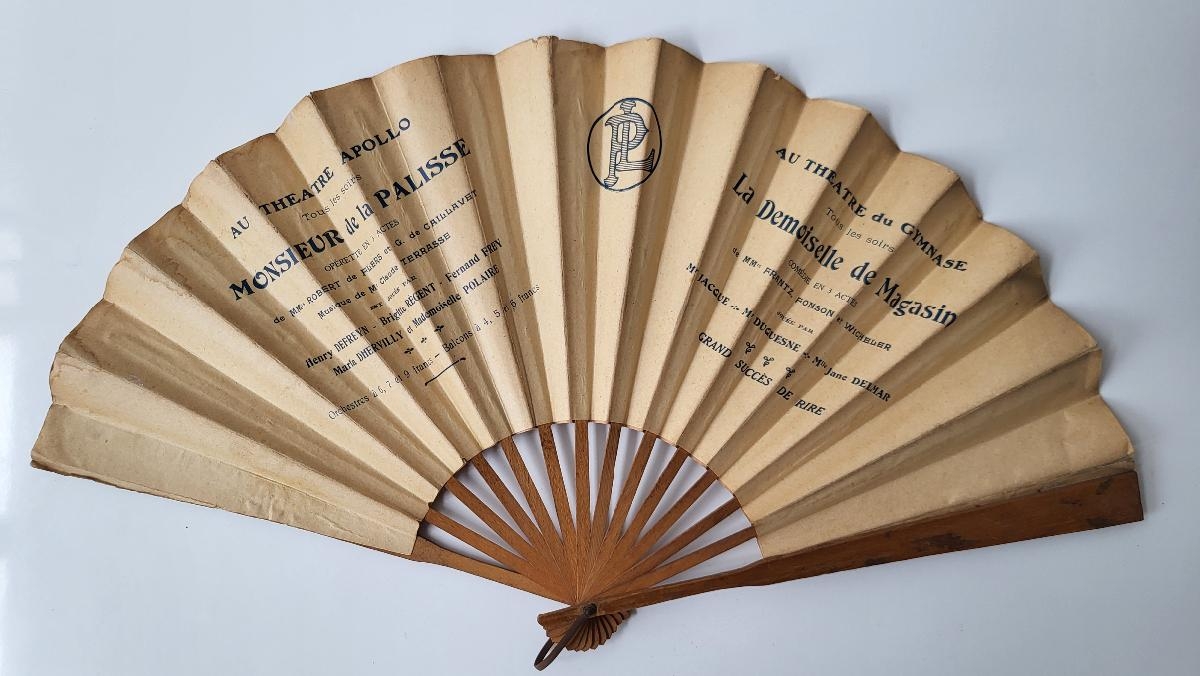 AU THEATRE APOLLO
Tous les soirs
MONSIEUR de la PALISSE
OPÉRETTE EN 3 ACTES
de MM. ROBERT de FLERS et G. de CAILLAVET
Musique de M. Claude TERRASSE
Henry DEFREYN - Brigitte REGENT - Fernand FREY
Marie DHERVILLY et Mademoiselle POLAIRE
Orchestres à 6, 7 et 9 francs - Balcons à 4, 5 et 6 francs
PL
AU THEATRE du GYMNASE
Tous les soirs
La Demoiselle de Magasin
COMÉDIE EN 3 ACTES
de MM. FRANTZ, FONSON et WICHELER
AVEC PAR
Mr JACQUE - Mr DUQUESNE - Mlle Jane DELMAR
GRAND SUCCÈS DE RIRE